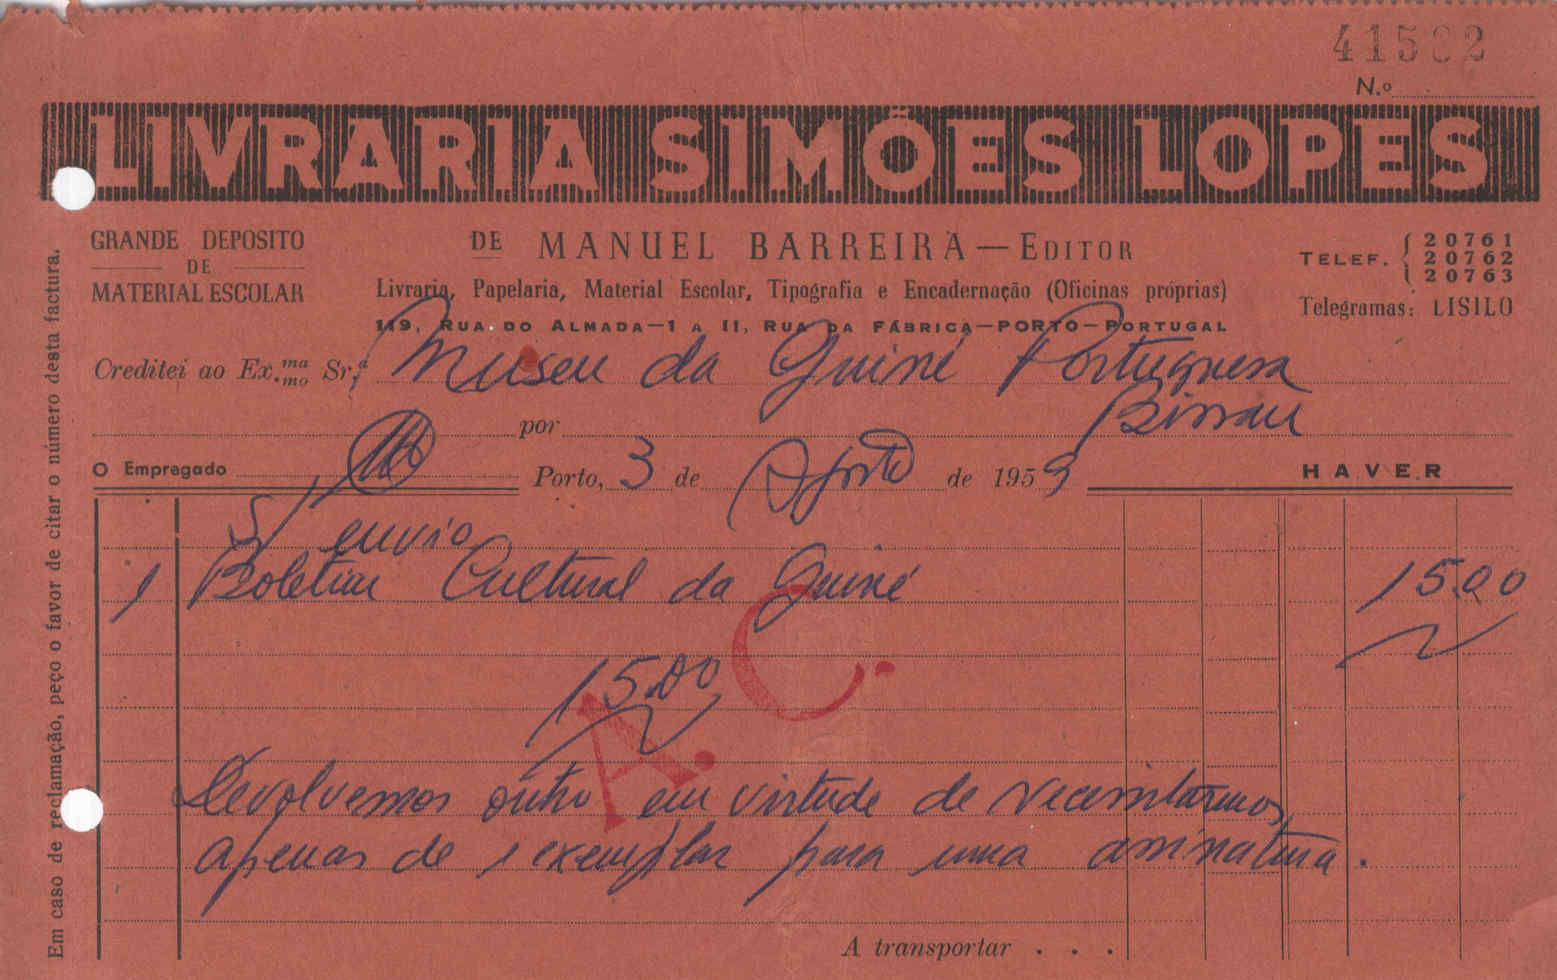 41502
N.º
LIVRARIA SIMÕES LOPES
GRANDE DEPOSITO
DE
MATERIAL ESCOLAR
DE MANUEL BARREIRA — EDITOR
Livraria, Papelaria, Material Escolar, Tipografia e Encadernação (Oficinas próprias)
119, RUA DO ALMADA—1 A 11, RUA DA FÁBRICA—PORTO—PORTUGAL
TELEF. 20761
20762
20763
Telegramas: LISILO
Creditei ao Ex.ma mo Sr.ª Museu da Guiné Portuguesa
por Bissau
O Empregado
Porto, 3 de Agosto de 1959
HAVER
S/ envio
1 Boletim Cultural da Guiné 15.00
15.00
A. C.
Devolvemos outro em virtude de necessitarmos
apenas de 1 exemplar para uma assinatura.
A transportar . . .
Em caso de reclamação, peço o favor de citar o número desta factura.